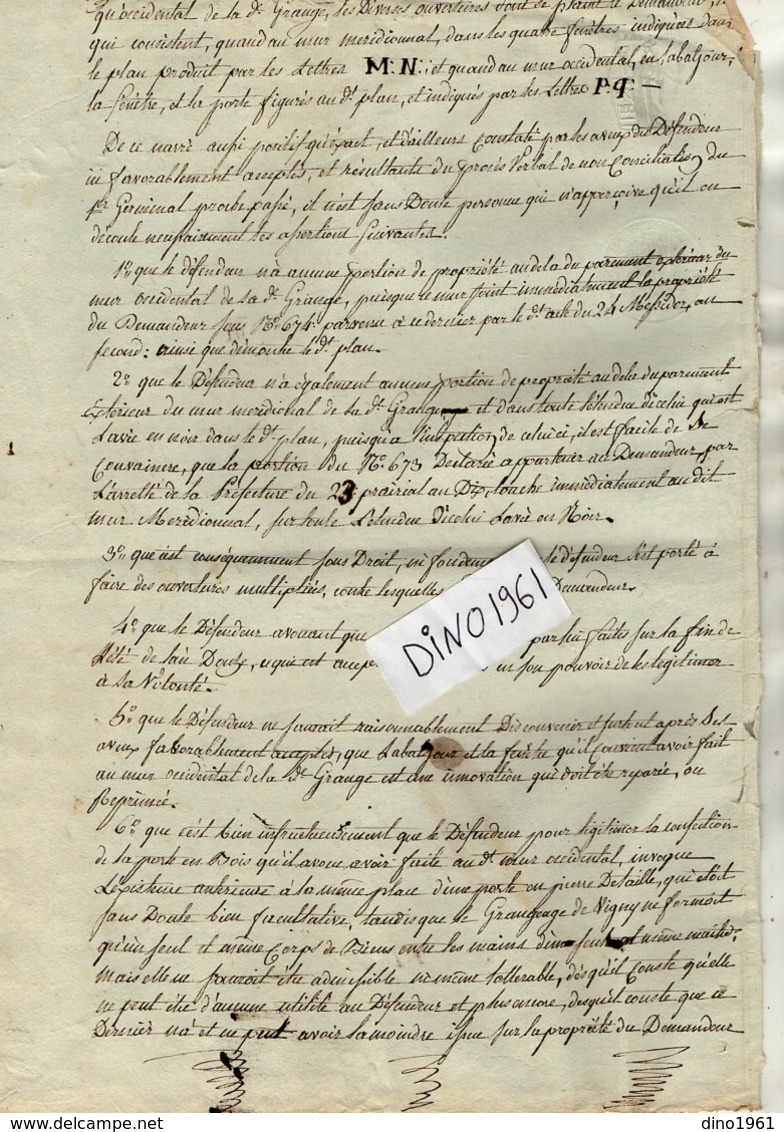 qu'occidental de la de. Grange, les Diverses ouvertures dont se plaint le Demandeur,
qui consistent, quand au mur meridionnal, dans les quatre fenêtres indiquées dans
le plan produit par les Lettres M: N: et quand au mur occidental, en l'abatjour,
la fenêtre, et la porte figurés au dt. plan, et indiqués par les Lettres P. q. —
De ce narré aussi positif qu'exact, et d'ailleurs Constaté par les aveux du Défendeur
ici favorablement acceptés, et résultants du procès Verbal de non Conciliation du
pr. Germinal proche passé, il n'est sans Doute personne qui n'apperçoive qu'il en
découle necessairement les assertions suivantes.
1o. que le défendeur n'a aucune portion de propriété au dela du parement extérieur du
mur occidental de sa de. Grange, puisque ce mur joint immédiatement la propriété
du Demandeur sous No. 674. parvenu à ce dernier par le dt. acte du 24 Messidor, an
second: ainsi que démontre le dt. plan.
2o. que le Défendeur n'a également aucune portion de propriété au dela du parement
Extérieur du mur meridional de sa de. Grange et dans toute l'étendue d'icelui qui est
Lavée en noir dans le dt. plan, puisqu'à l'inspection, de celui ci, il est facile de se
Convaincre, que la portion du No. 673 Déclarée appartenir au Demandeur, par
L'arretté de la Prefecture du 23 prairial an Dix, touche immédiatement au dit
mur Meridionnal, sur toute L'étendue d'icelui Lavée en Noir.
3o. que est conséquemment sans Droit, ni fondement le défendeur s'est porté à
faire des ouvertures multipliées, contre lesquelles Demandeur.
4o. que le Défendeur avouant que par lui faites sur la fin de
l'été de l'an Douze, en son pouvoir de les legitimer
à sa Volonté.
5o. que le Défendeur ne sauroit raisonnablement Disconvenir et surtout après Des
aveux favorablement acceptés, que L'abatjour et la fenêtre qu'il Convient avoir fait
au mur occidental de la de. Grange est une innovation qui doit être reparée, ou
Reprimée.
6o. que c'est bien infructueusement que le Défendeur pour légitimer la confection
de la porte en Bois qu'il avoue avoir faite au dt. mur occidental, invoque
L'existence antérieure à la même place d'une porte en pierre De taille, qui étoit
sans Doute bien facultative, tandis que le Grangeage de Vigny ne formoit
qu'un seul et même Corps de Biens entre les mains d'un seul et même maitre;
mais elle ne sauroit être admissible ni même tollerable, dès qu'il Conste qu'elle
ne peut être d'aucune utilité au Défendeur et plus encore, des qu'il conste que ce
Dernier n'a et ne peut avoir la moindre issue sur la propriété du Demandeur
1
DINO1961
dino1961